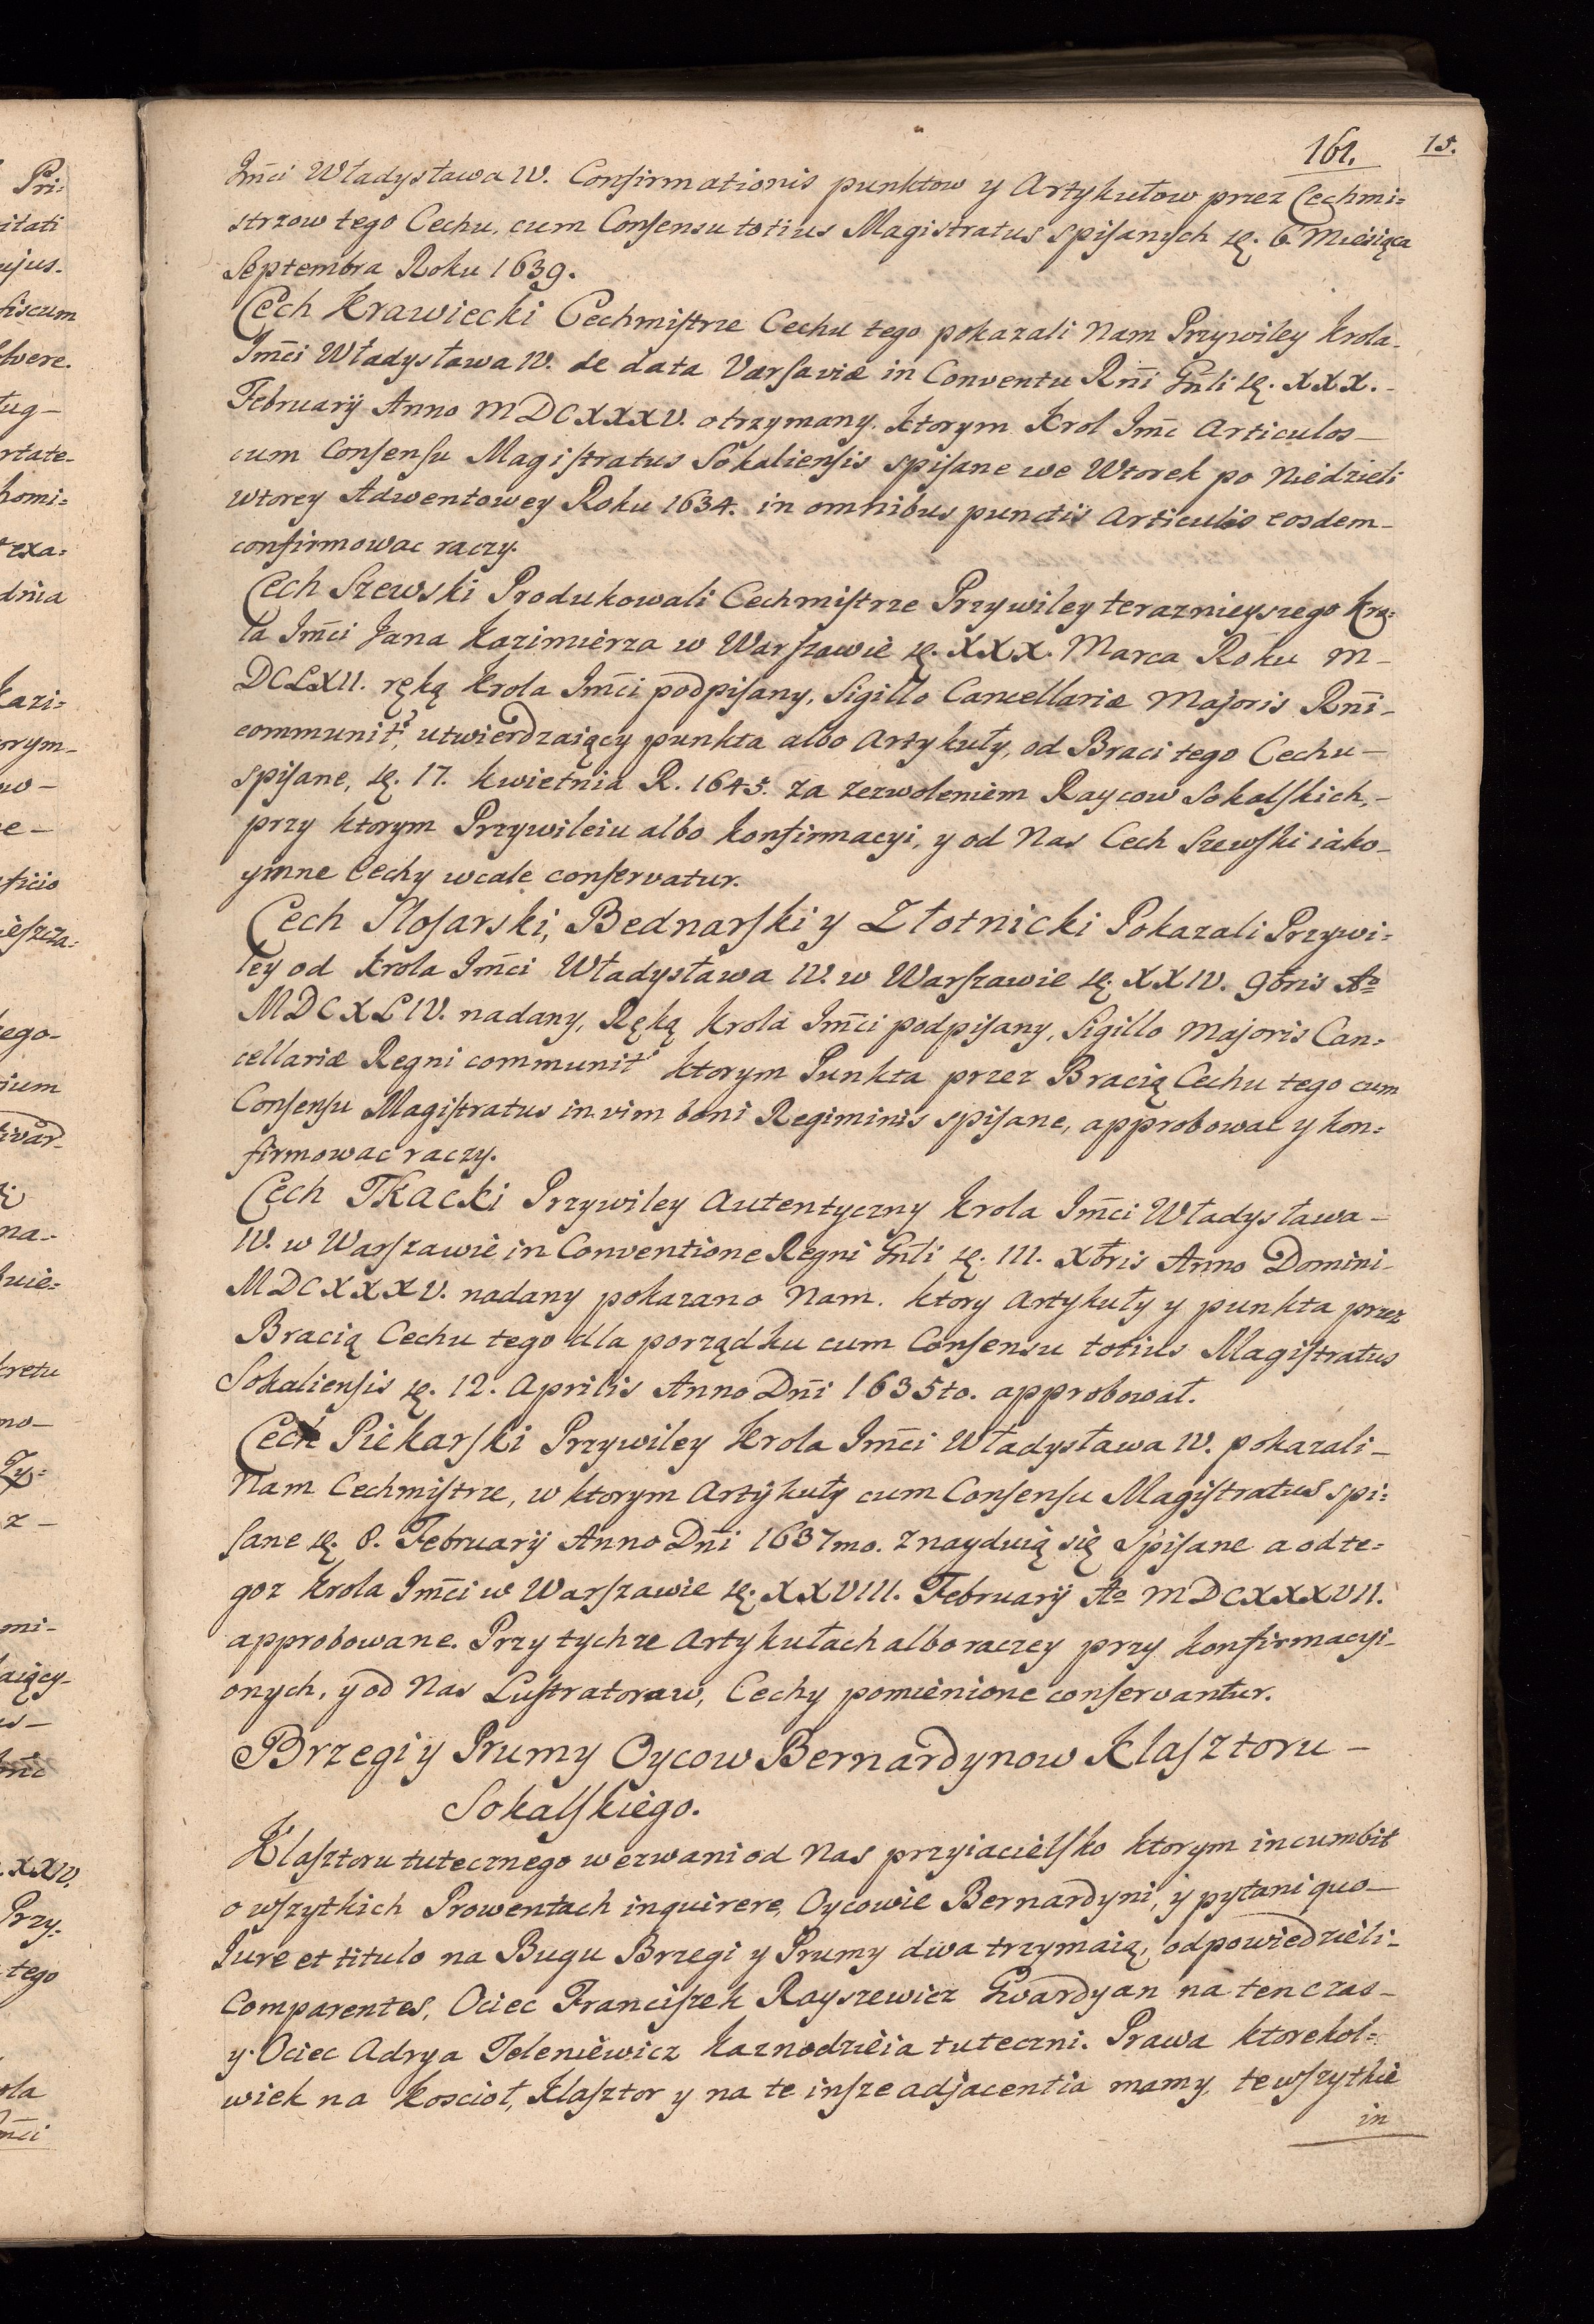 161. 15.
Jm̄ci Władysława IV. Confirmationis punktow y Artykułow przez Cechmi=
strzow tego Cechu, cum Consensu totius Magistratus spisanych d. 6. Miesiąca
Septembra Roku 1639.
Cech Krawiecki Cechmistrze Cechu tego pokazali Nam Przywiley Krola
Jm̄ci Władysława IV. de data Varsaviæ in Conventu Rn̄i Gn̄li d. XXX.-
February Anno MDCXXXV. otrzymany. Ktorym Krol Jm̄c Articulos-
cum Consensu Magistratus Sokaliensis spisane we Wtorek po Niedzieli
wtorey Adwentowey Roku 1634. in omnibus punctis Articulis eosdem-
confirmowac raczy.
Cech Szewski Produkowali Cechmistrze Przywiley teraznieyszego Kro=
la Jm̄ci Jana Kazimierza w Warszawie d. XXX. Marca Roku M-
DCLXII. ręką Krola Jm̄ci podpisany, Sigillo Cancellariæ Majoris Rn̄i-
communit, utwierdzaiący punkta albo Artykuły, od Braci tego Cechu-
spisane, d. 17. Kwietnia R. 1645. za zezwoleniem Raycow Sokalskich,-
przy ktorym Przywileiu albo Konfirmacyi, y od Nas Cech Szewski iako-
ymne Cechy wcale conservatur.
Cech Slosarski, Bednarski y Złotnicki Pokazali Przywi=
ley od Krola Jm̄ci Władysława IV. w Warszawie d. XXIV. 9bris Ao
MDCXLIV. nadany, Ręką Krola Jm̄ci podpisany, Sigillo Majoris Can=
cellariæ Regni communit ktorym Punkta przez Bracią Cechu tego cum
Consensu Magistratus in vim boni Regiminis spisane, approbowac y kon=
firmowac raczy.
Cech Tkacki Przywiley Autentyczny Krola Jm̄ci Władysława-
IV. w Warszawie in Conventione Regni Gn̄li d. III. Xbris Anno Domini-
MDCXXXV. nadany pokazano Nam. ktory Artykuły y punkta przez
Bracią Cechu tego dla porządku cum Consensu totius Magistratus
Sokaliensis d. 12. Aprilis Anno Dn̄i 1635to. approbował.
Cech Piekarski Przywiley Krola Jm̄ci Władysława IV. pokazali-
Nam Cechmistrze, w ktorym Artykuły cum Consensu Magistratus spi=
sane d. 8. February Anno Dn̄i 1637mo. znayduią się Spisane a od te=
goz Krola Jm̄ci w Warszawie d. XXVIII. February Ao MDCXXXVII.
approbowane. Przy tychze Artykułach albo raczey przy Konfirmacyi-
onych, y od Nas Lustratorow, Cechy pomienione conservantur.
Brzegi y Prumy Oycow Bernardynow Klasztoru-
Sokalskiego.
Klasztoru tutecznego wezwani od Nas przyiacielsko ktorym incumbit
o wszytkich Prowentach inquirere, Oycowie Bernardyni, y pytani quo-
Jure et titulo na Bugu Brzegi y Prumy dwa trzymaią, odpowiedzieli-
Comparentes, Ociec Franciszek Rayszewicz Gwardyan na ten czas-
y Ociec Adrya Teleniewicz Kaznodzieia tuteczni. Prawa ktorekol=
wiek na Koscioł, Klasztor y na te insze adjacentia mamy, te wszytkie
in